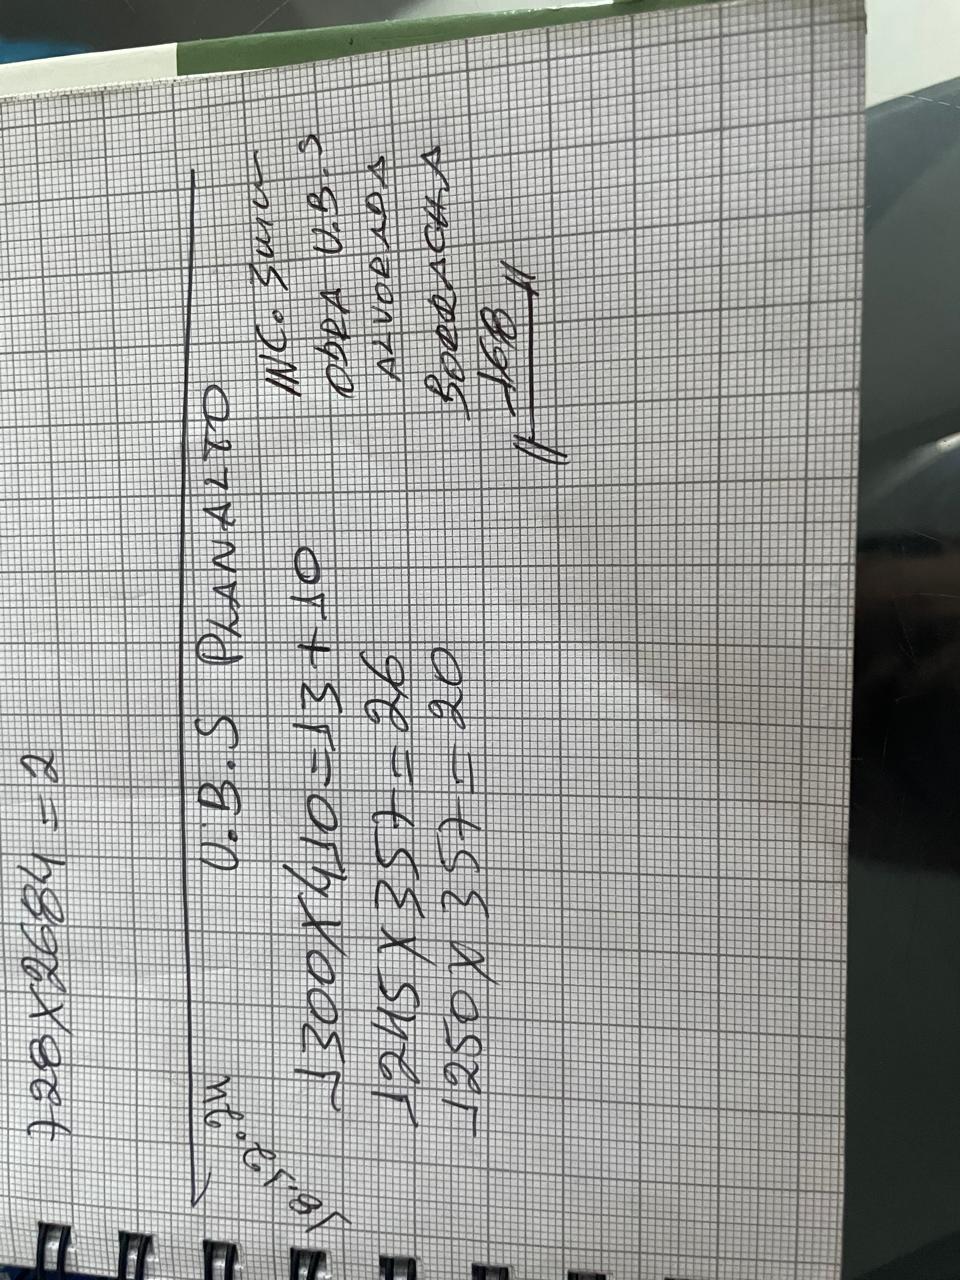 728X2684=2
U.B.S PLANALTO
1300X410=13+10
1245X357=26
1250X357=20
OBRA U.B.S
ALVORADA
BORRACHA
168